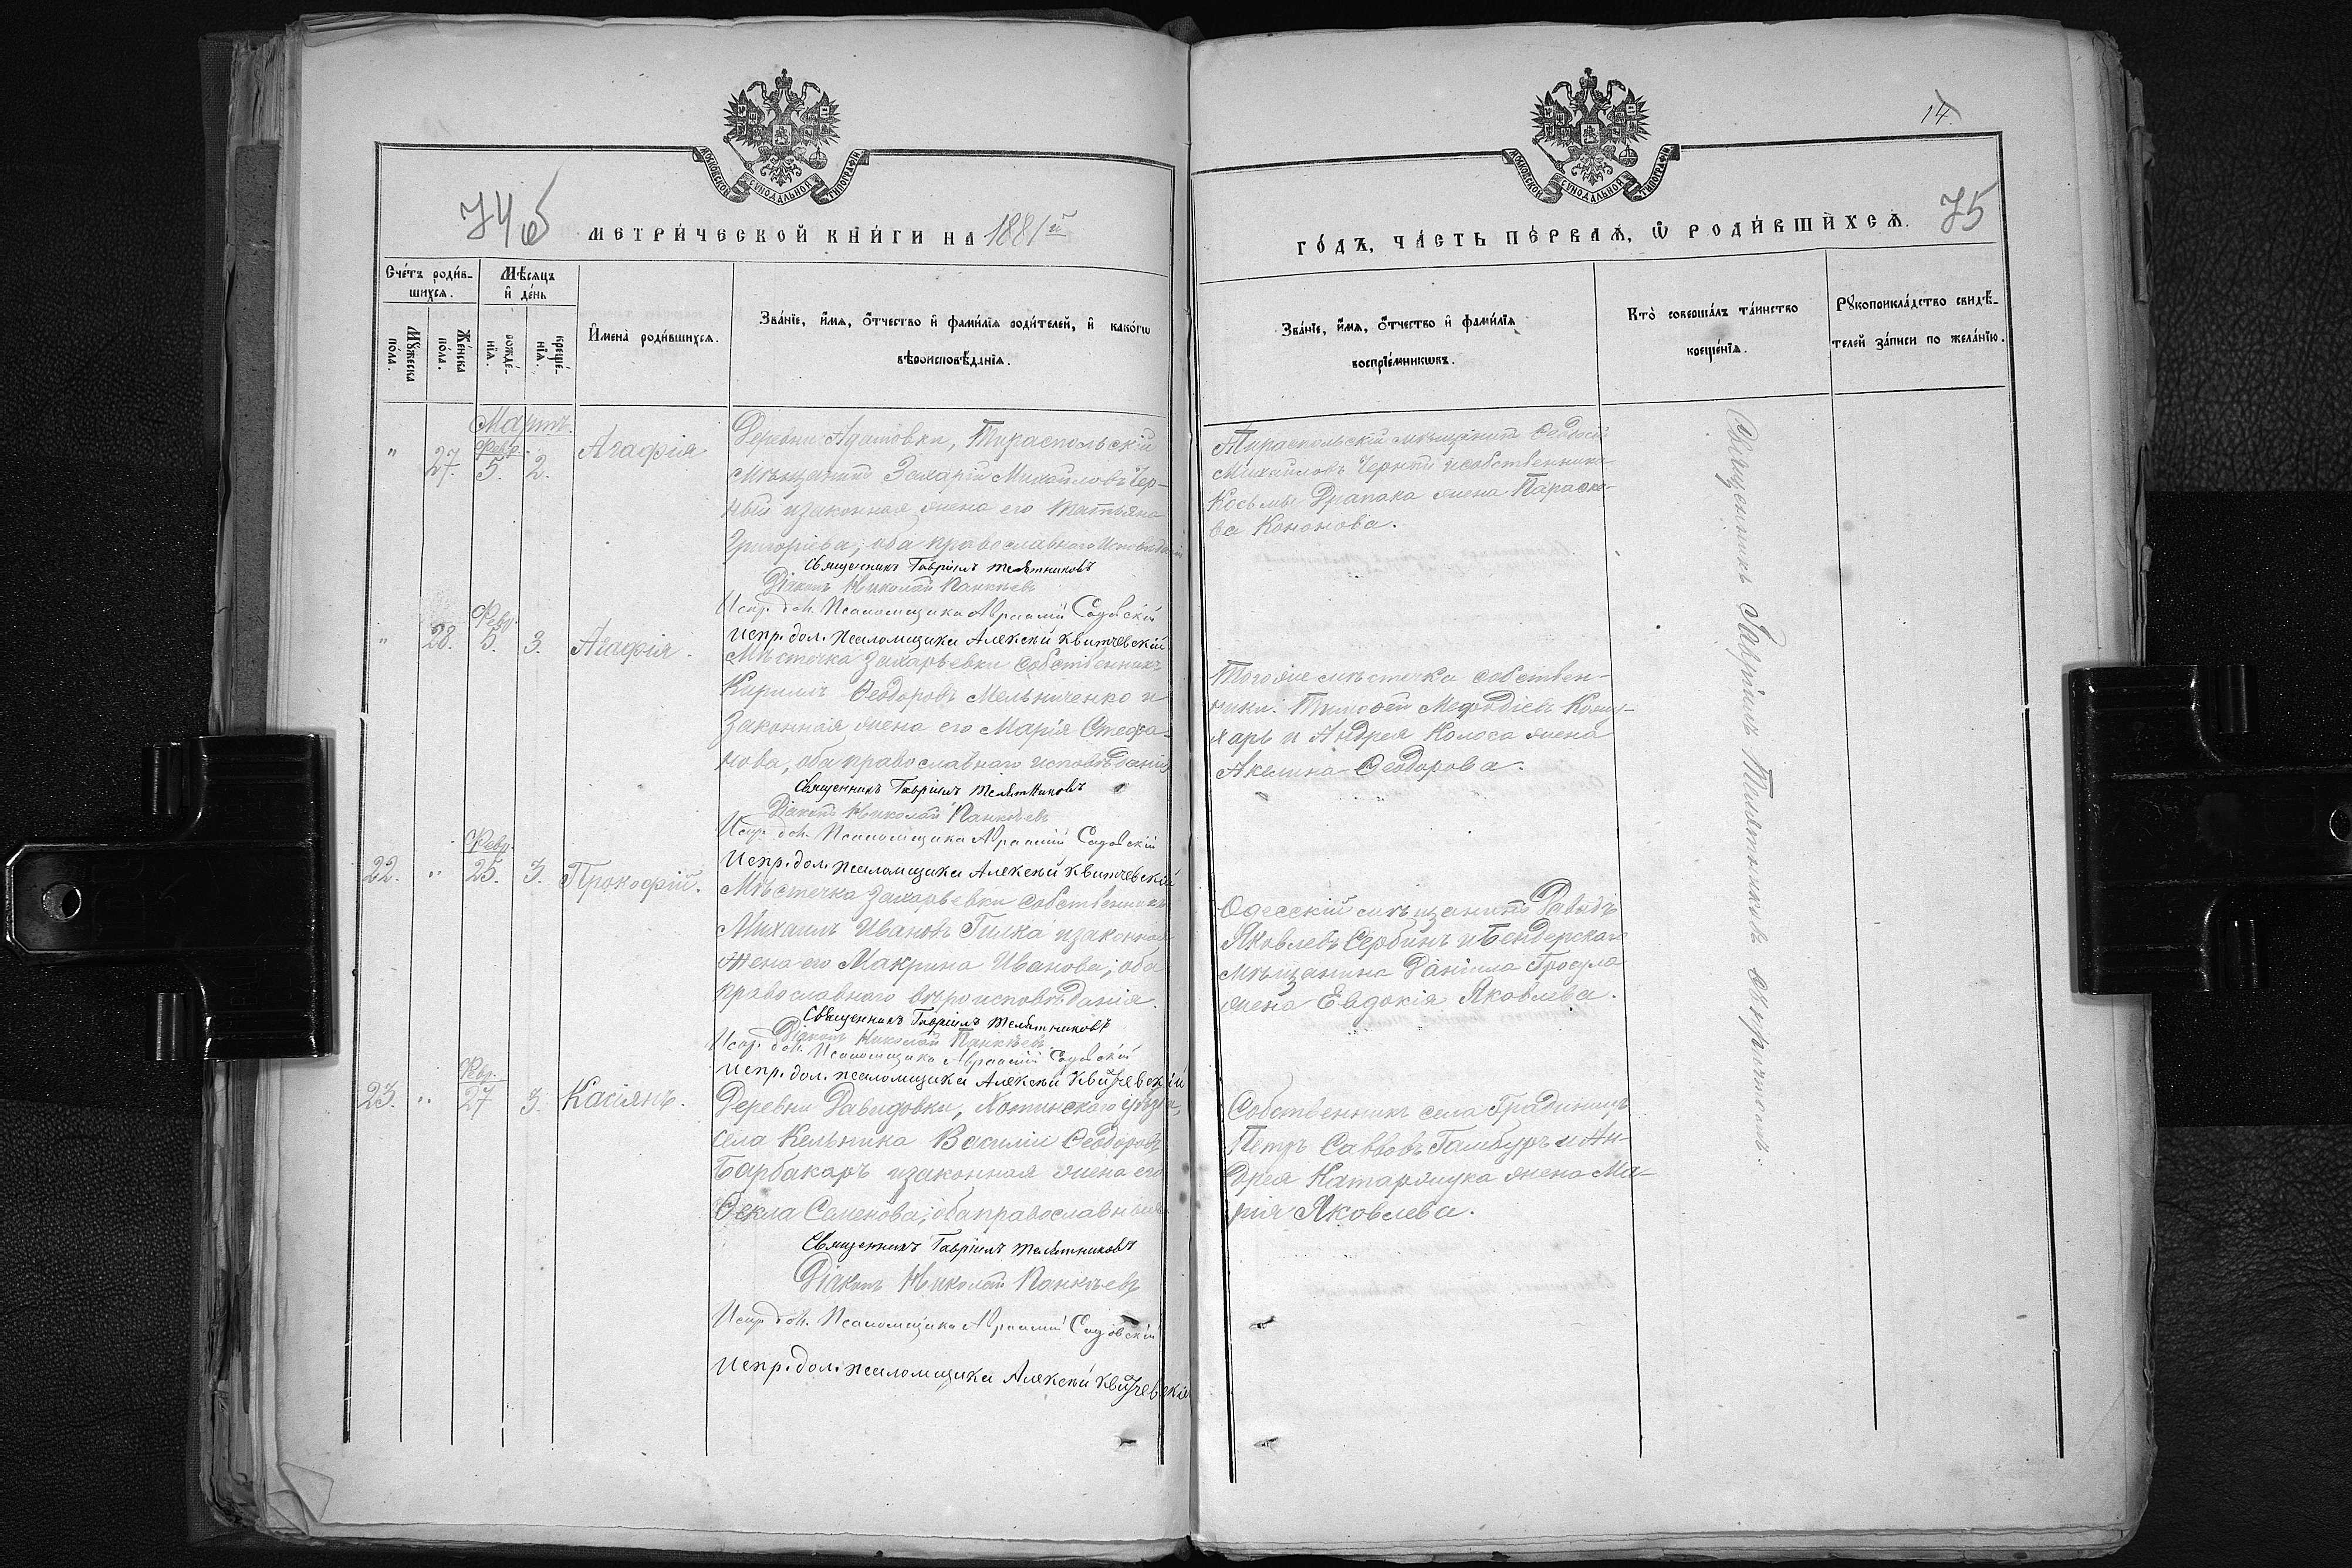 МОСКОВСКОЙ СѴНОДАЛЬНОЙ ТИПОГРАФІИ
74 об
МЕТРИ́ЧЕСКОЙ КНИ́ГИ НА 1881й
Сче́тъ роди́в-
шихсѧ.
Мѣ́сѧцъ
и҆ де́нь
Мꙋ́жеска
по́ла.
Же́нска
по́ла.
рожде́-
нїѧ.
креще́-
нїѧ.
И҆мена̀ роди́вшихсѧ.
Зва́нїе, и҆́мѧ, ѻ҆́тчество и҆ фами́лїѧ роди́телей, и҆ како́гѡ
вѣроисповѣ́данїѧ.
Мартъ.
"
27.
Февр.
5.
2.
Агафія
Деревни Адамовки, Тираспольскій
мѣщанинъ Захарій Михайловъ Чер-
ный и законная жена его Татьяна
Григоріева, оба православнаго исповѣданія
Священникъ Гавріилъ Телятниковъ
Діаконъ Николай Панкѣевъ
Испр. дол. Псаломщика Авраамій Садовскій
Испр. дол. псаломщика Алексѣй Квитчевскій
"
28.
Февр.
5.
3.
Агафія.
Мѣстечка Захарьевки собственникъ
Кириллъ Ѳеодоровъ Мельниченко и
законная жена его Марія Стефа-
нова, оба православнаго исповѣданія
Священникъ Гавріилъ Телятниковъ
Діаконъ Николай Панкѣевъ
Испр. дол. Псаломщика Авраамій Садовскій
Испр. дол. псаломщика Алексѣй Квитчевскій
22.
"
Февр.
25.
3.
Прокофій.
Мѣстечка Захарьевки собственникъ
Михаилъ Ивановъ Гилка и законная
жена его Макрина Иванова; оба
православнаго вѣроисповѣданія.
Священникъ Гавріилъ Телятниковъ
Діаконъ Николай Панкѣевъ
Испр. дол. Псаломщика Авраамій Садовскій
Испр. дол. псаломщика Алексѣй Квитчевскій
23.
"
Фвр.
27
3.
Касіянъ.
Деревни Давидовки, Хотинскаго уѣзда,
села Кельника Василій Ѳеодоровъ
Барбакаръ и законная жена его
Ѳекла Семенова; оба православные
Священникъ Гавріилъ Телятниковъ
Діаконъ Николай Панкѣевъ
Испр. дол. Псаломщика Авраамій Садовскій
Испр. дол. псаломщика Алексѣй Квитчевскій
14.
МОСКОВСКОЙ СѴНОДАЛЬНОЙ ТИПОГРАФІИ
ГО́ДЪ, ЧА́СТЬ ПЕ́РВАѦ, Ѡ҆ РОДИ́ВШИХСѦ.
75
Зва́нїе, и҆́мѧ, ѻ҆́тчество и҆ фами́лїѧ
воспрїе́мникѡвъ.
Кто̀ соверша́лъ та́инство
креще́нїѧ.
Рꙋкоприкла́дство свидѣ́-
телей за́писи по жела́нїю.
Тираспольскій мѣщанинъ Ѳеодосій
Михайловъ Черный и собственника
Косьмы Драпака жена Параске-
ва Кононова.
Тогоже мѣстечка собствен-
ники: Тимофей Меѳодіевъ Кожу-
харь и Андрея Колоса жена
Акелина Ѳеодорова.
Одесскій мѣщанинъ Давидъ
Яковлевъ Сербинъ и Бендерскаго
мѣщанина Даніила Гросула
жена Евдокія Яковлева.
Собственникъ села Градиницъ
Петръ Саввовъ Гамбуръ и Ан-
дрея Катаржука жена Ма-
рія Яковлева.
Священникъ Гавріилъ Телятниковъ